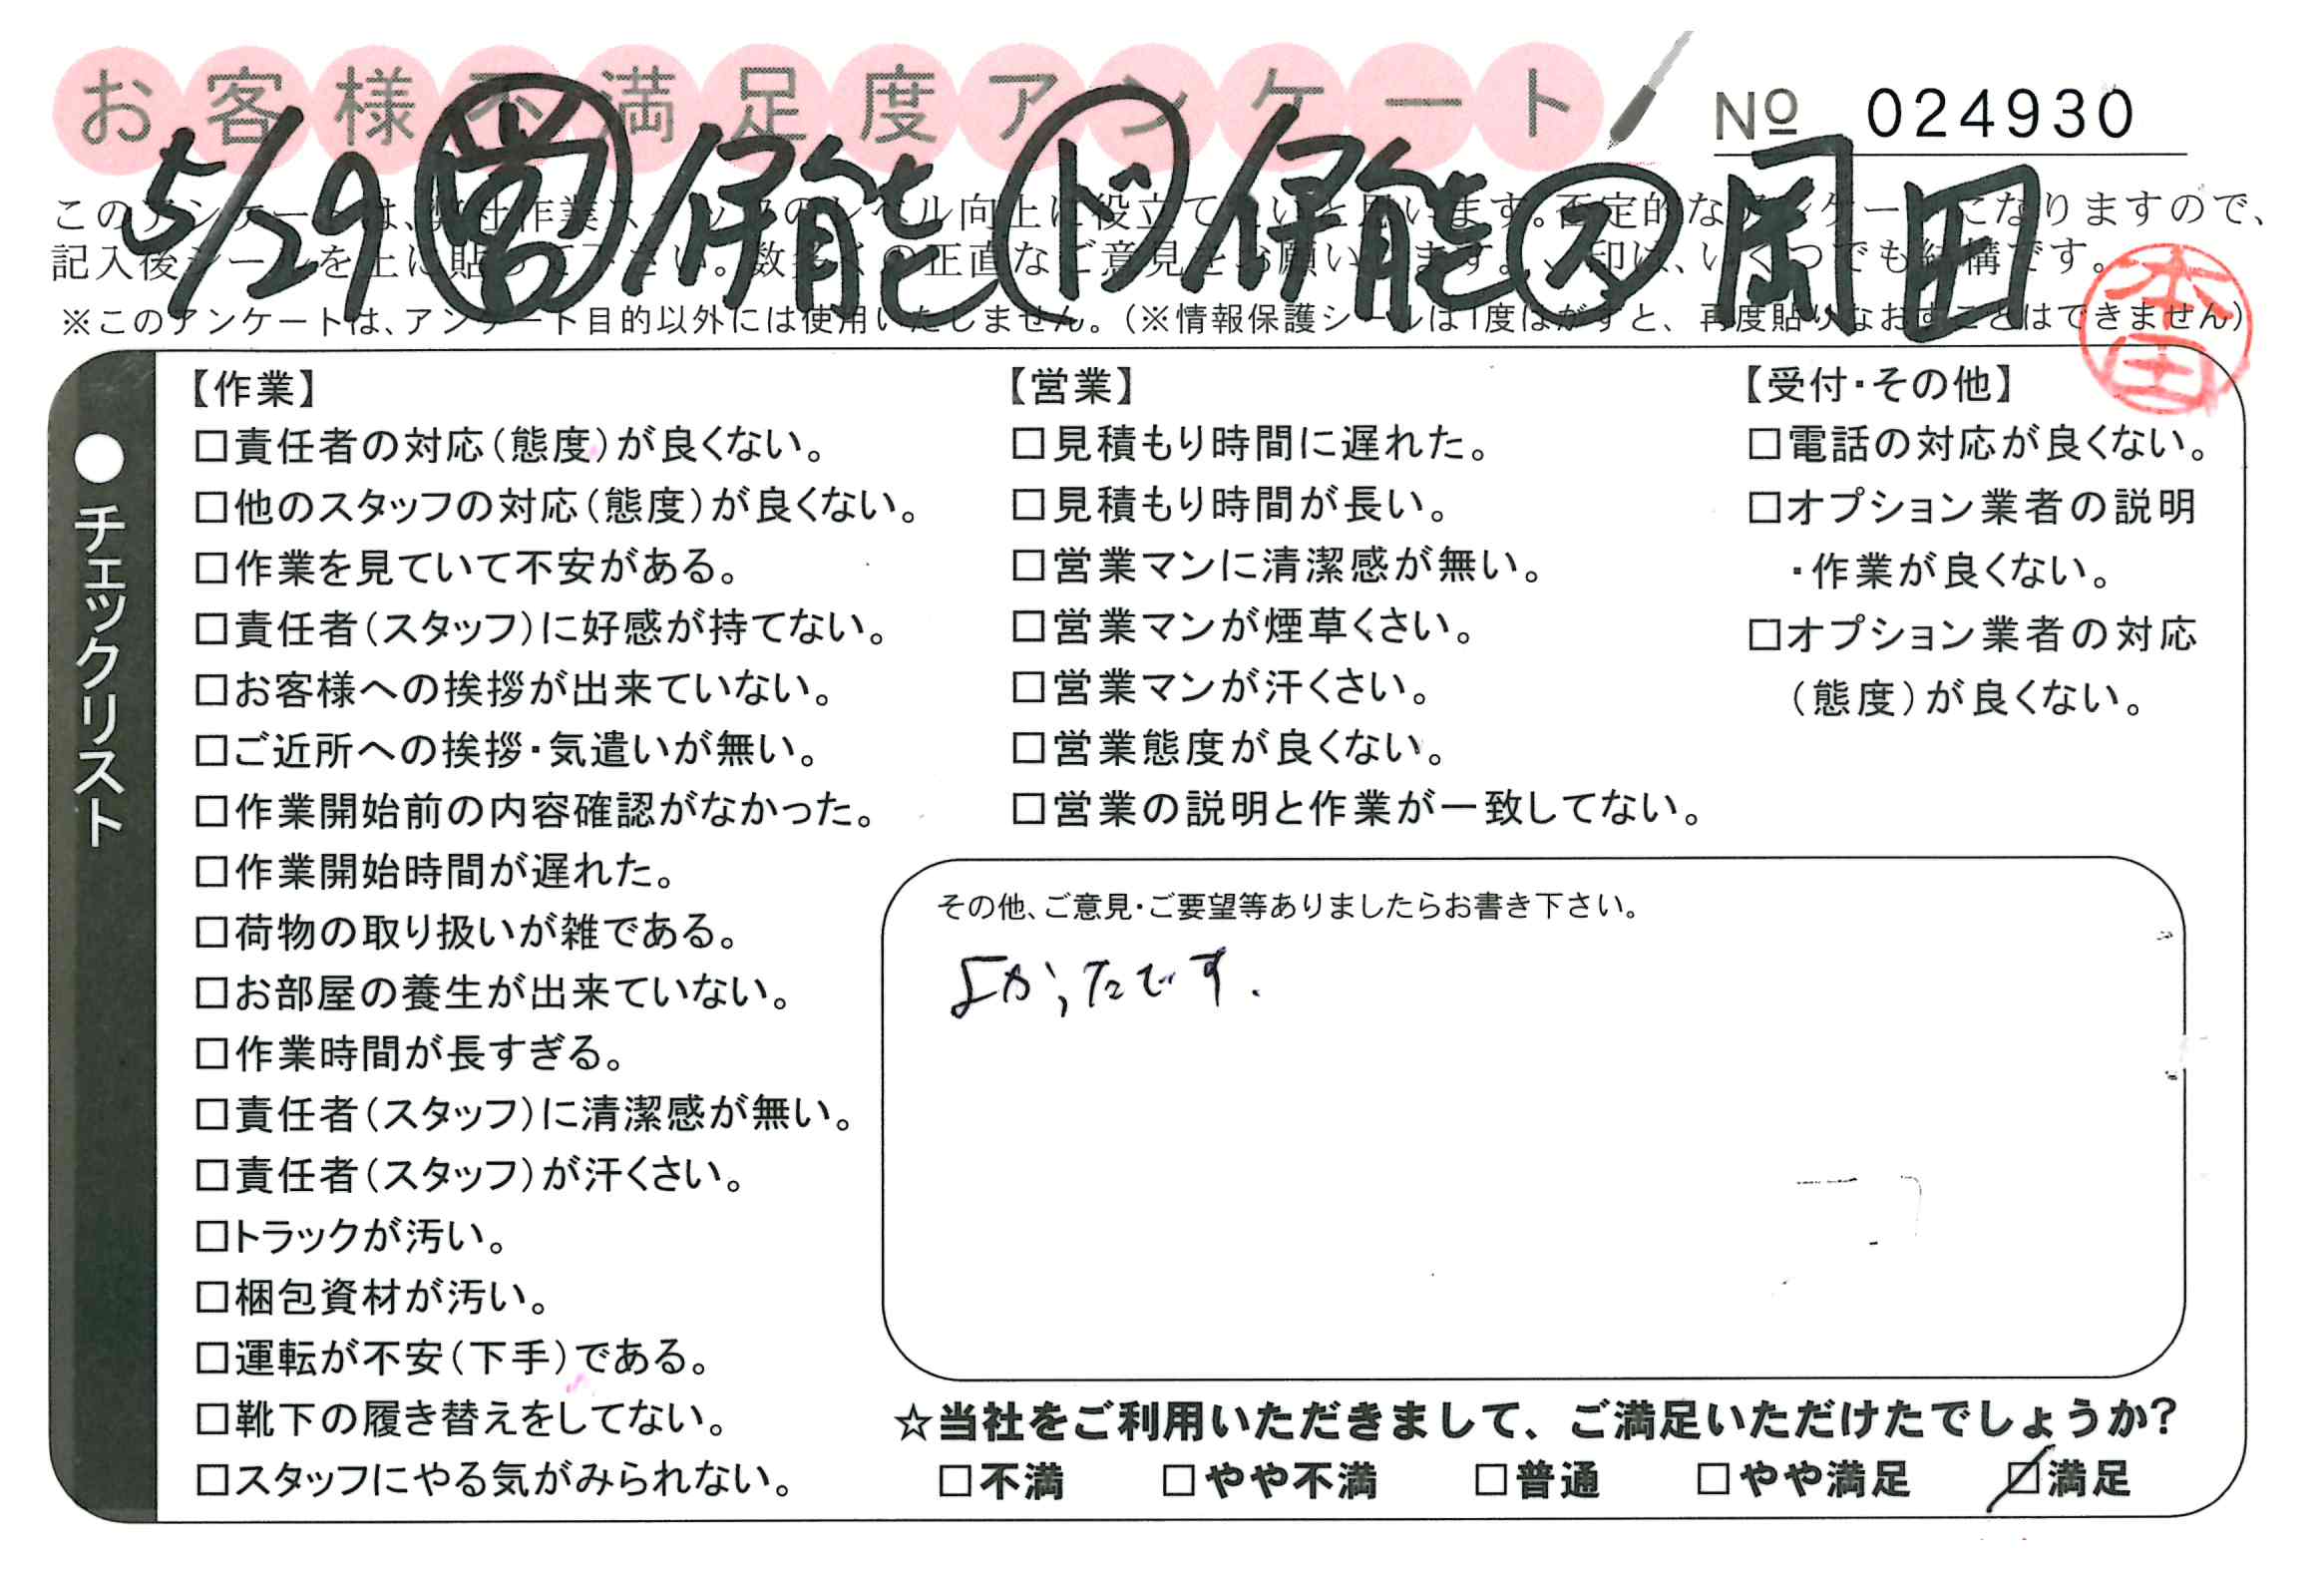 お客様不満足度アンケート
Nº 024930
5/29 営 伊能 ド 伊能 ス 岡田
このアンケートは、弊社作業スタッフのレベル向上に役立てたいと思います。否定的なアンケートになりますので、
記入後シールを上に貼って下さい。数多くの正直なご意見をお願いします。、印は、いくつでも結構です。
※このアンケートは、アンケート目的以外には使用いたしません。(※情報保護シールは1度はがすと、再度貼りなおすことはできません)
本田
●チェックリスト
【作業】
□責任者の対応(態度)が良くない。
□他のスタッフの対応(態度)が良くない。
□作業を見ていて不安がある。
□責任者(スタッフ)に好感が持てない。
□お客様への挨拶が出来ていない。
□ご近所への挨拶・気遣いが無い。
□作業開始前の内容確認がなかった。
□作業開始時間が遅れた。
□荷物の取り扱いが雑である。
□お部屋の養生が出来ていない。
□作業時間が長すぎる。
□責任者(スタッフ)に清潔感が無い。
□責任者(スタッフ)が汗くさい。
□トラックが汚い。
□梱包資材が汚い。
□運転が不安(下手)である。
□靴下の履き替えをしてない。
□スタッフにやる気がみられない。
【営業】
□見積もり時間に遅れた。
□見積もり時間が長い。
□営業マンに清潔感が無い。
□営業マンが煙草くさい。
□営業マンが汗くさい。
□営業態度が良くない。
□営業の説明と作業が一致してない。
【受付・その他】
□電話の対応が良くない。
□オプション業者の説明
・作業が良くない。
□オプション業者の対応
(態度)が良くない。
その他、ご意見・ご要望等ありましたらお書き下さい。
よかったです.
☆当社をご利用いただきまして、ご満足いただけたでしょうか?
□不満 □やや不満 □普通 □やや満足 ☑満足